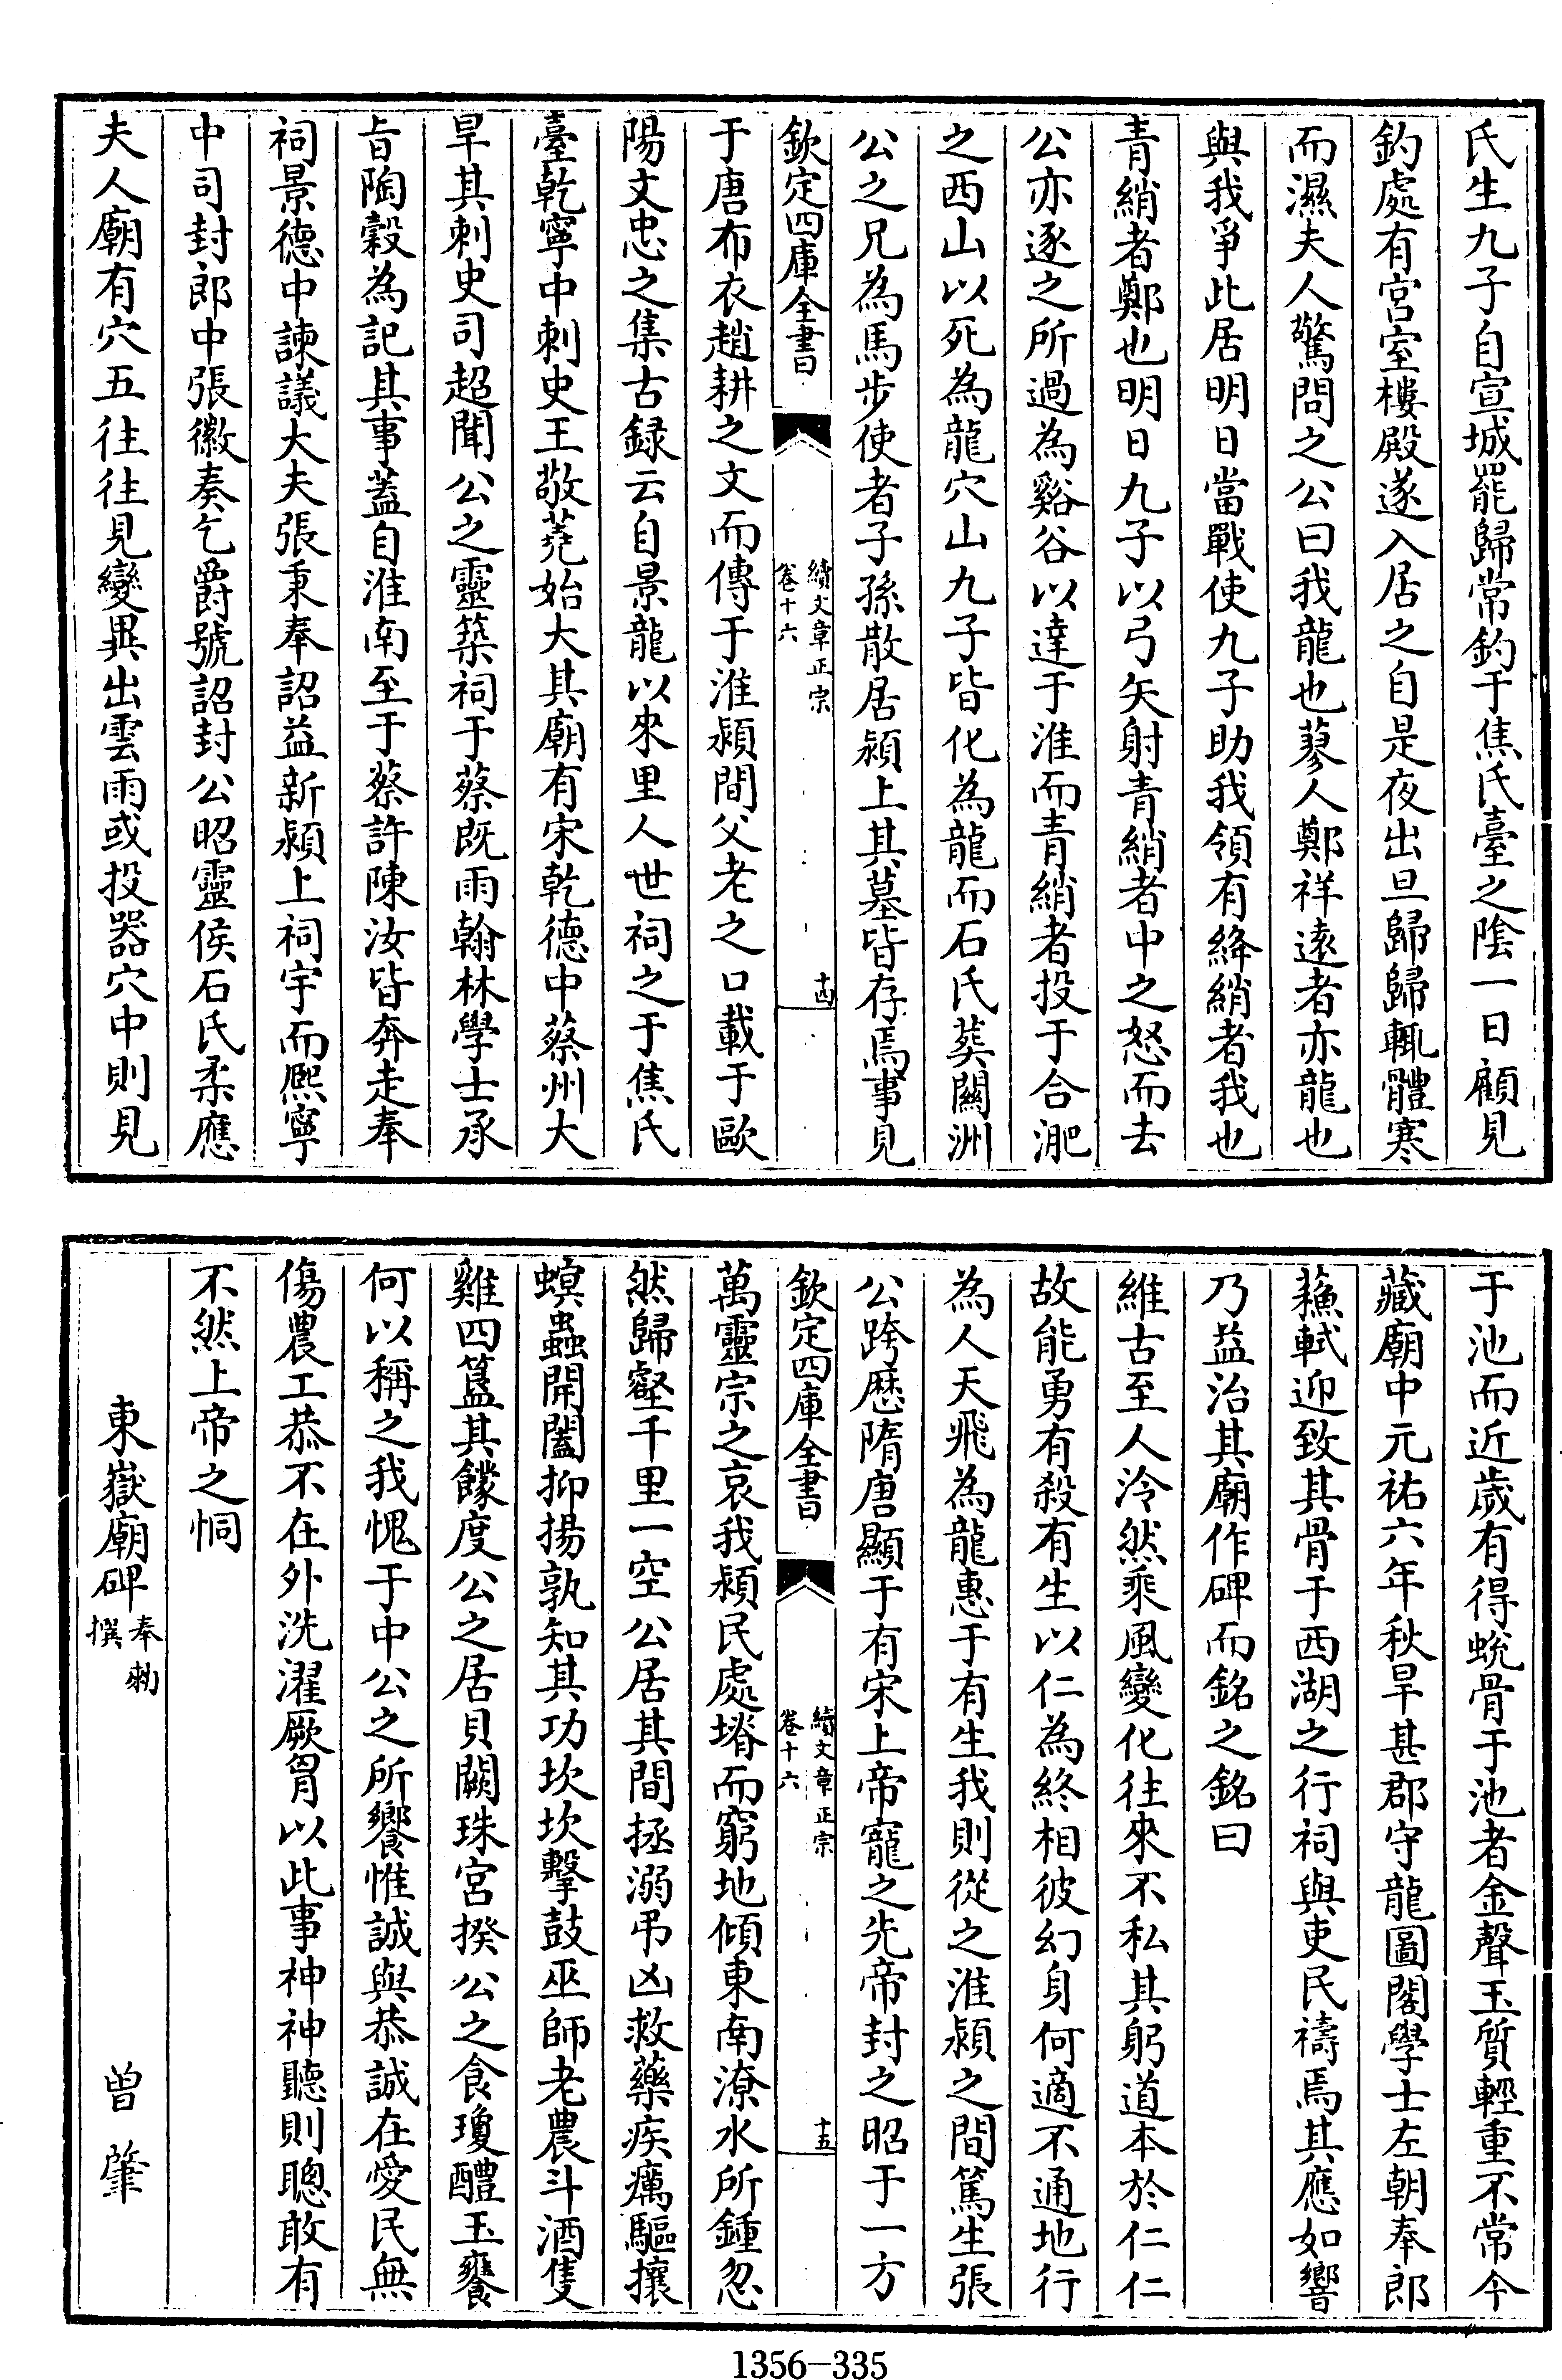 氏生九子自宣城罷歸常釣于焦氏臺之陰一日顧見
釣處有宮室樓殿遂入居之自是夜出旦歸歸輒體寒
而濕夫人驚問之公曰我龍也蓼人鄭祥遠者亦龍也
與我爭此居明日當戰使九子助我領有絳綃者我也
青綃者鄭也明日九子以弓矢射青綃者中之怒而去
公亦逐之所過為谿谷以達于淮而青綃者投于合淝
之西山以死為龍穴山九子皆化為龍而石氏葬關洲
公之兄為馬步使者子孫散居潁上其墓皆存焉事見
欽定四庫全書
續文章正宗
卷十六
十四
于唐布衣趙耕之文而傳于淮潁間父老之口載于歐
陽文忠之集古録云自景龍以來里人世祠之于焦氏
臺乾寧中刺史王敬蕘始大其廟有宋乾德中蔡州大
旱其刺史司超聞公之靈築祠于蔡既雨翰林學士承
㫖陶穀為記其事葢自淮南至于蔡許陳汝皆奔走奉
祠景德中諫議大夫張秉奉詔益新潁上祠宇而熈寧
中司封郎中張徽奏乞爵號詔封公昭靈侯石氏柔應
夫人廟有穴五往往見變異出雲雨或投器穴中則見
于池而近歲有得蛻骨于池者金聲玉質輕重不常今
藏廟中元祐六年秋旱甚郡守龍圖閣學士左朝奉郎
蘓軾迎致其骨于西湖之行祠與吏民禱焉其應如響
乃益治其廟作碑而銘之銘曰
維古至人泠然乘風變化往來不私其躬道本於仁仁
故能勇有殺有生以仁為終相彼幻身何適不通地行
為人天飛為龍惠于有生我則從之淮潁之間篤生張
公跨歴隋唐顯于有宋上帝寵之先帝封之昭于一方
欽定四庫全書
續文章正宗
卷十六
十五
萬靈宗之哀我潁民處堾而窮地傾東南潦水所鍾忽
然歸壑千里一空公居其間拯溺弔凶救藥疾癘驅攘
螟蟲開闔抑揚孰知其功坎坎擊鼓巫師老農斗酒隻
雞四簋其饛度公之居貝闕珠宮揆公之食瓊醴玉饔
何以稱之我愧于中公之所饗惟誠與恭誠在愛民無
傷農工恭不在外洗濯厥胷以此事神神聽則聰敢有
不然上帝之恫
東嶽廟碑 奉勑撰 曾肇
1356-335